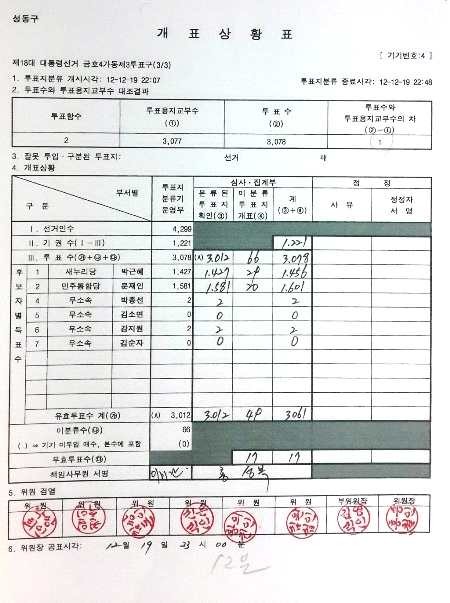 성동구
개 표 상 황 표
[ 기기번호:4 ]
제18대 대통령선거 금호4가동제3투표구(3/3)
1. 투표지분류 개시시각: 12-12-19 22:07 투표지분류 종료시각: 12-12-19 22:48
2. 투표수와 투표용지교부수 대조결과
투표함수 투표용지교부수 (①) 투 표 수 (②) 투표수와 투표용지교부수의 차 (②-①)
2 3,077 3,078 1
3. 잘못 투입·구분된 투표지: 선거 매
4. 개표상황
부서별 구 분 투표지 분류기 운영부 심사·집계부 정 정
분류된 투표지 확인(③) 미분류 투표지 개표(④) 계 (③+④) 사 유 정정자 서 명
Ⅰ. 선거인수 4,299
Ⅱ. 기 권 수(Ⅰ-Ⅲ) 1,221 1.221
Ⅲ. 투 표 수 3,078 (A) 3.012 66 3.078
후보자별득표수
1 새누리당 박근혜 1,427 1.427 29 1.456
2 민주통합당 문재인 1,581 1.581 20 1.601
4 무소속 박종선 2 2 2
5 무소속 김소연 0 0 0
6 무소속 강지원 2 2 2
7 무소속 김순자 0 0 0
유효투표수 계(㉮) (A) 3,012 3.012 49 3.061
미분류수 66
(.) ⇒ 기기 미투입 매수, 본수에 포함 (0)
무효투표수 17 17
책임사무원 서명
5. 위원 검열
위 원 위 원 위 원 위 원 위 원 위 원 부위원장 위원장
6. 위원장 공표시각: 12월 19일 23 시 00 분